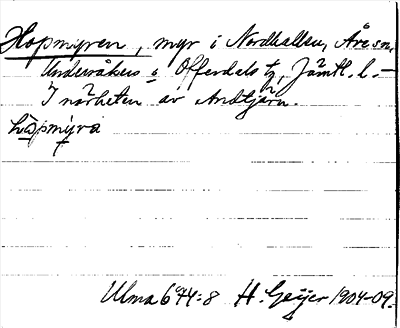 Hopmyren, myr i Nordhallen, Åre sn,
Undersåkers o Offerdals tg, Jämtl. l. -
I närheten av Andtjärn.
hòpmyra
Ulma 644:8 H. Geijer 1904-09.